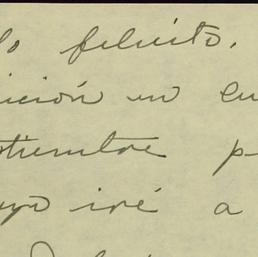 lo felicito.
ición en eu
ptiembre p
uyo iré a